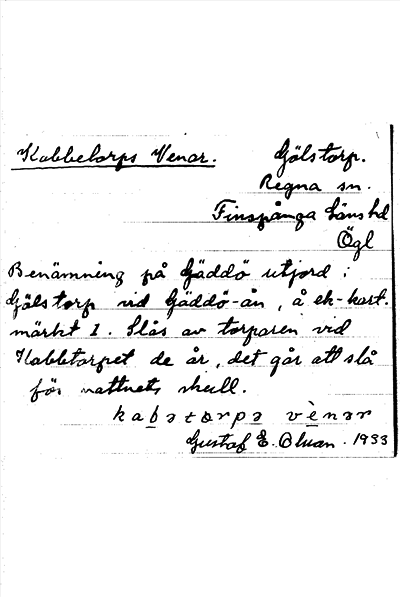 Kabbetorps Venar. Gölstorp.
Regna sn.
Finspånga läns hd
Ögl
Benämning på Gäddö utjord i
Gölstorp vid Gäddö-ån, å ek-kart.
märkt 1. Slås av torparen vid
Kabbetorpet de år, det går att slå
för vattnets skull.
kabətɔrpə vènər
Gustaf E. 1933